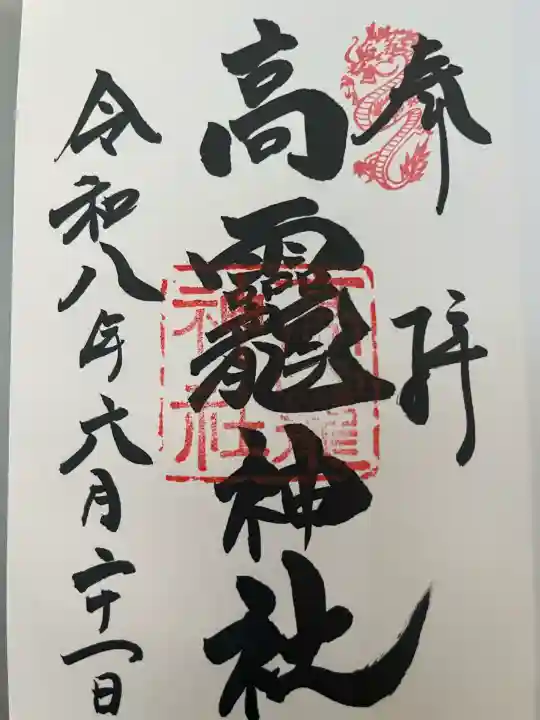 奉拝
高龗神社
令和八年六月二十一日